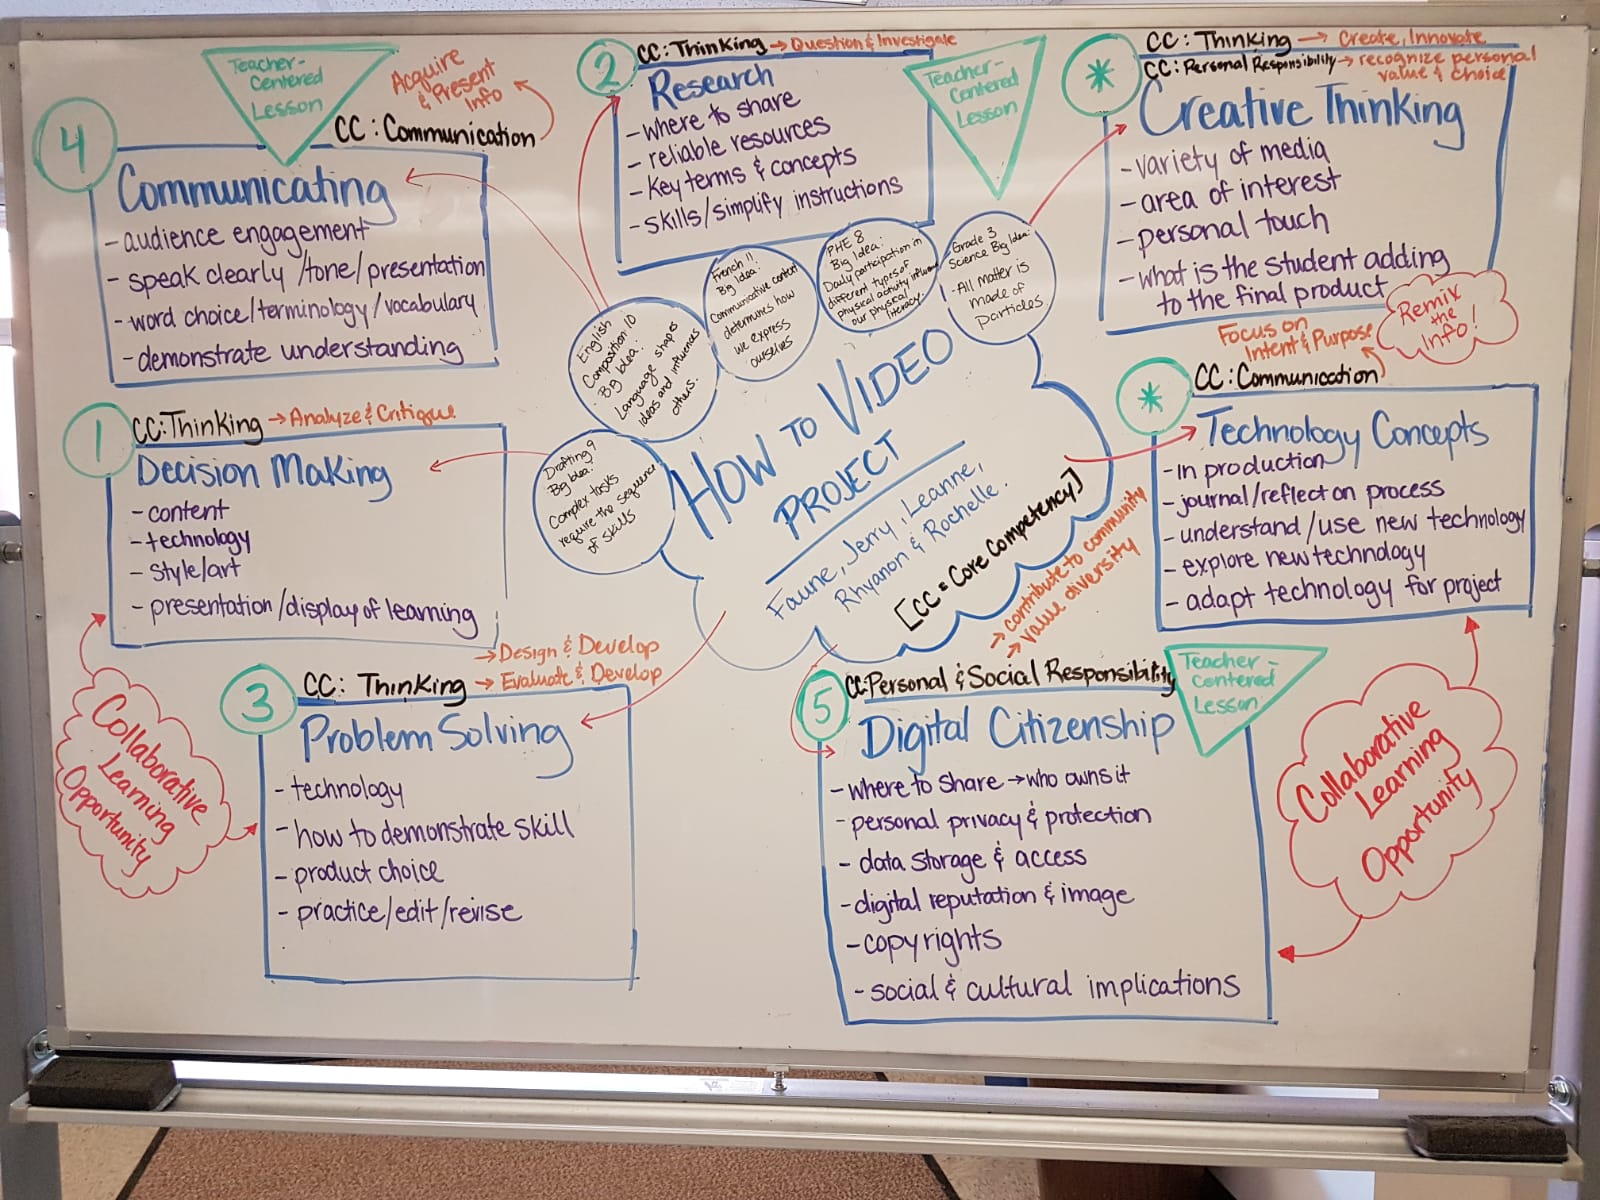 Teacher-
Centered
Lesson
Acquire
& Present
Info
CC: Communication
4
Communicating
- audience engagement
- speak clearly /tone/presentation
- word choice/terminology/vocabulary
- demonstrate understanding
2
CC: Thinking → Question & Investigate
Research
- where to share
- reliable resources
- Key terms & concepts
- skills/simplify instructions
Teacher-
Centered
Lesson
*
CC: Thinking → Create, Innovate
CC: Personal Responsibility → recognize personal
value & choice
Creative Thinking
- variety of media
- area of interest
- personal touch
- what is the student adding
to the final product
Remix
the
Info!
1
CC: Thinking → Analyze & Critique
Decision Making
- content
- technology
- style/art
- presentation/display of learning
Drafting 9
Big Idea:
Complex tasks
require the sequence
of skills
English
Composition 10
Big Idea:
Language shapes
ideas and influences
others.
French 11:
Big Idea:
Communicative context
determines how
we express
ourselves
PHE 8
Big Idea:
Daily participation in
different types of
physical activity influence
our physical
literacy.
Grade 3
Science Big Idea:
- All matter is
made of
particles
HOW TO VIDEO
PROJECT
Faune, Jerry, Leanne,
Rhyanon & Rochelle.
[CC = Core Competency]
*
Focus on
Intent & Purpose
CC: Communication
Technology Concepts
- in production
- journal/reflect on process
- understand /use new technology
- explore new technology
- adapt technology for project
Collaborative
Learning
Opportunity
3
→ Design & Develop
CC: Thinking → Evaluate & Develop
Problem Solving
- technology
- how to demonstrate skill
- product choice
- practice/edit/revise
5
→ contribute to community
→ value diversity
CC: Personal & Social Responsibility
Teacher-
Centered
Lesson
Digital Citizenship
- where to share → who owns it
- personal privacy & protection
- data storage & access
- digital reputation & image
- copyrights
- social & cultural implications
Collaborative
Learning
Opportunity